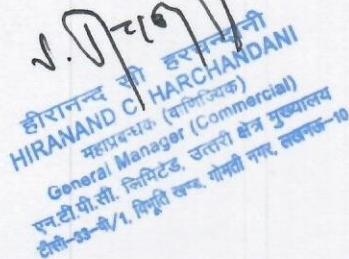 हीरानन्द सी हरचन्दानी
HIRANAND C. HARCHANDANI
महाप्रबन्धक (वाणिज्यिक)
General Manager (Commercial)
एन.टी.पी.सी. लिमिटेड, उत्तरी क्षेत्र मुख्यालय
टीसी-33-वी/1, विभूति खण्ड, गोमती नगर, लखनऊ-10